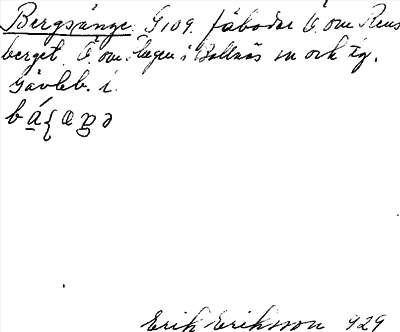 Bergsänge. G 109. fäbodar Ö. om Rens
berget. Ö. om Ljugen i Bollnäs sn och tg.
Gävleb. l.
Erik Eriksson 929